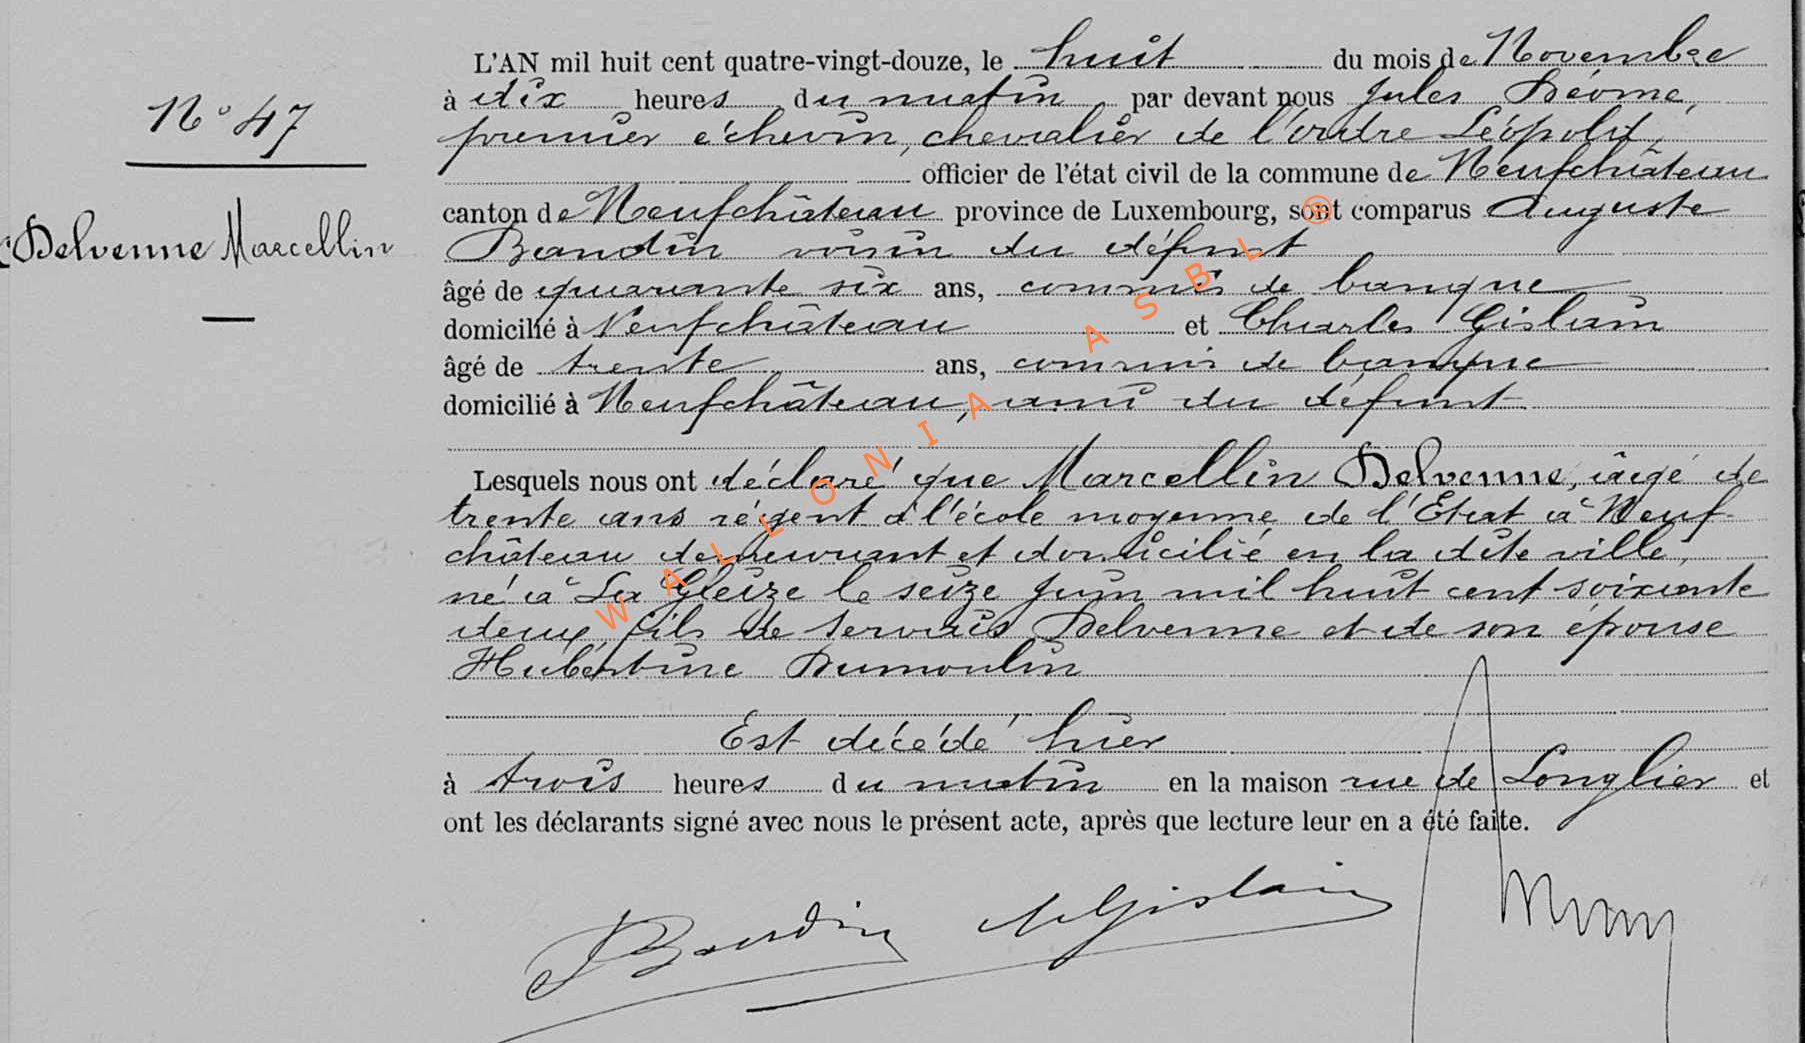 L'AN mil huit cent quatre-vingt-douze, le huit du mois de Novembre
N° 47
à dix heures du matin par devant nous Jules Déome,
premier échevin, chevalier de l'ordre Léopold,
officier de l'état civil de la commune de Neufchâteau
canton de Neufchâteau province de Luxembourg, sont comparus Auguste
Delvenne Marcellin
Baudin voisin du défunt
âgé de quarante six ans, commis de banque
domicilié à Neufchâteau et Charles Gislain
âgé de trente ans, commis de banque
domicilié à Neufchâteau, ami du défunt
Lesquels nous ont déclaré que Marcellin Delvenne, âgé de
trente ans régent à l'école moyenne de l'Etat à Neuf
château demeurant et domicilié en la dite ville,
né à La Gleize le seize Juin mil huit cent soixante
deux, fils de Servais Delvenne et de son épouse
Hubertine Dumoulin
Est décédé hier
à trois heures du matin en la maison rue de Longlier et
ont les déclarants signé avec nous le présent acte, après que lecture leur en a été faite.
Baudin Gislain
WALLONIA ASBL ®